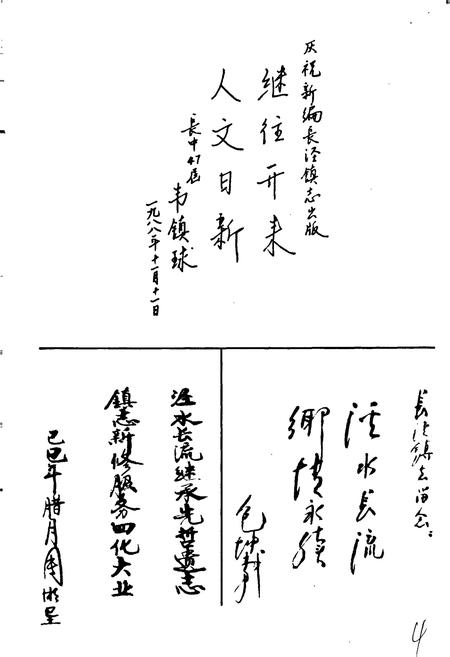 庆祝新编長泾镇志出版
继往开来
人文日新
長中47届
韦镇球
一九八八年十一月十一日
长泾镇志留念：
泾水长流
乡情永续
包坤
泾水长流继承先哲遗志
镇志新修服务四化大业
己巳年腊月
4